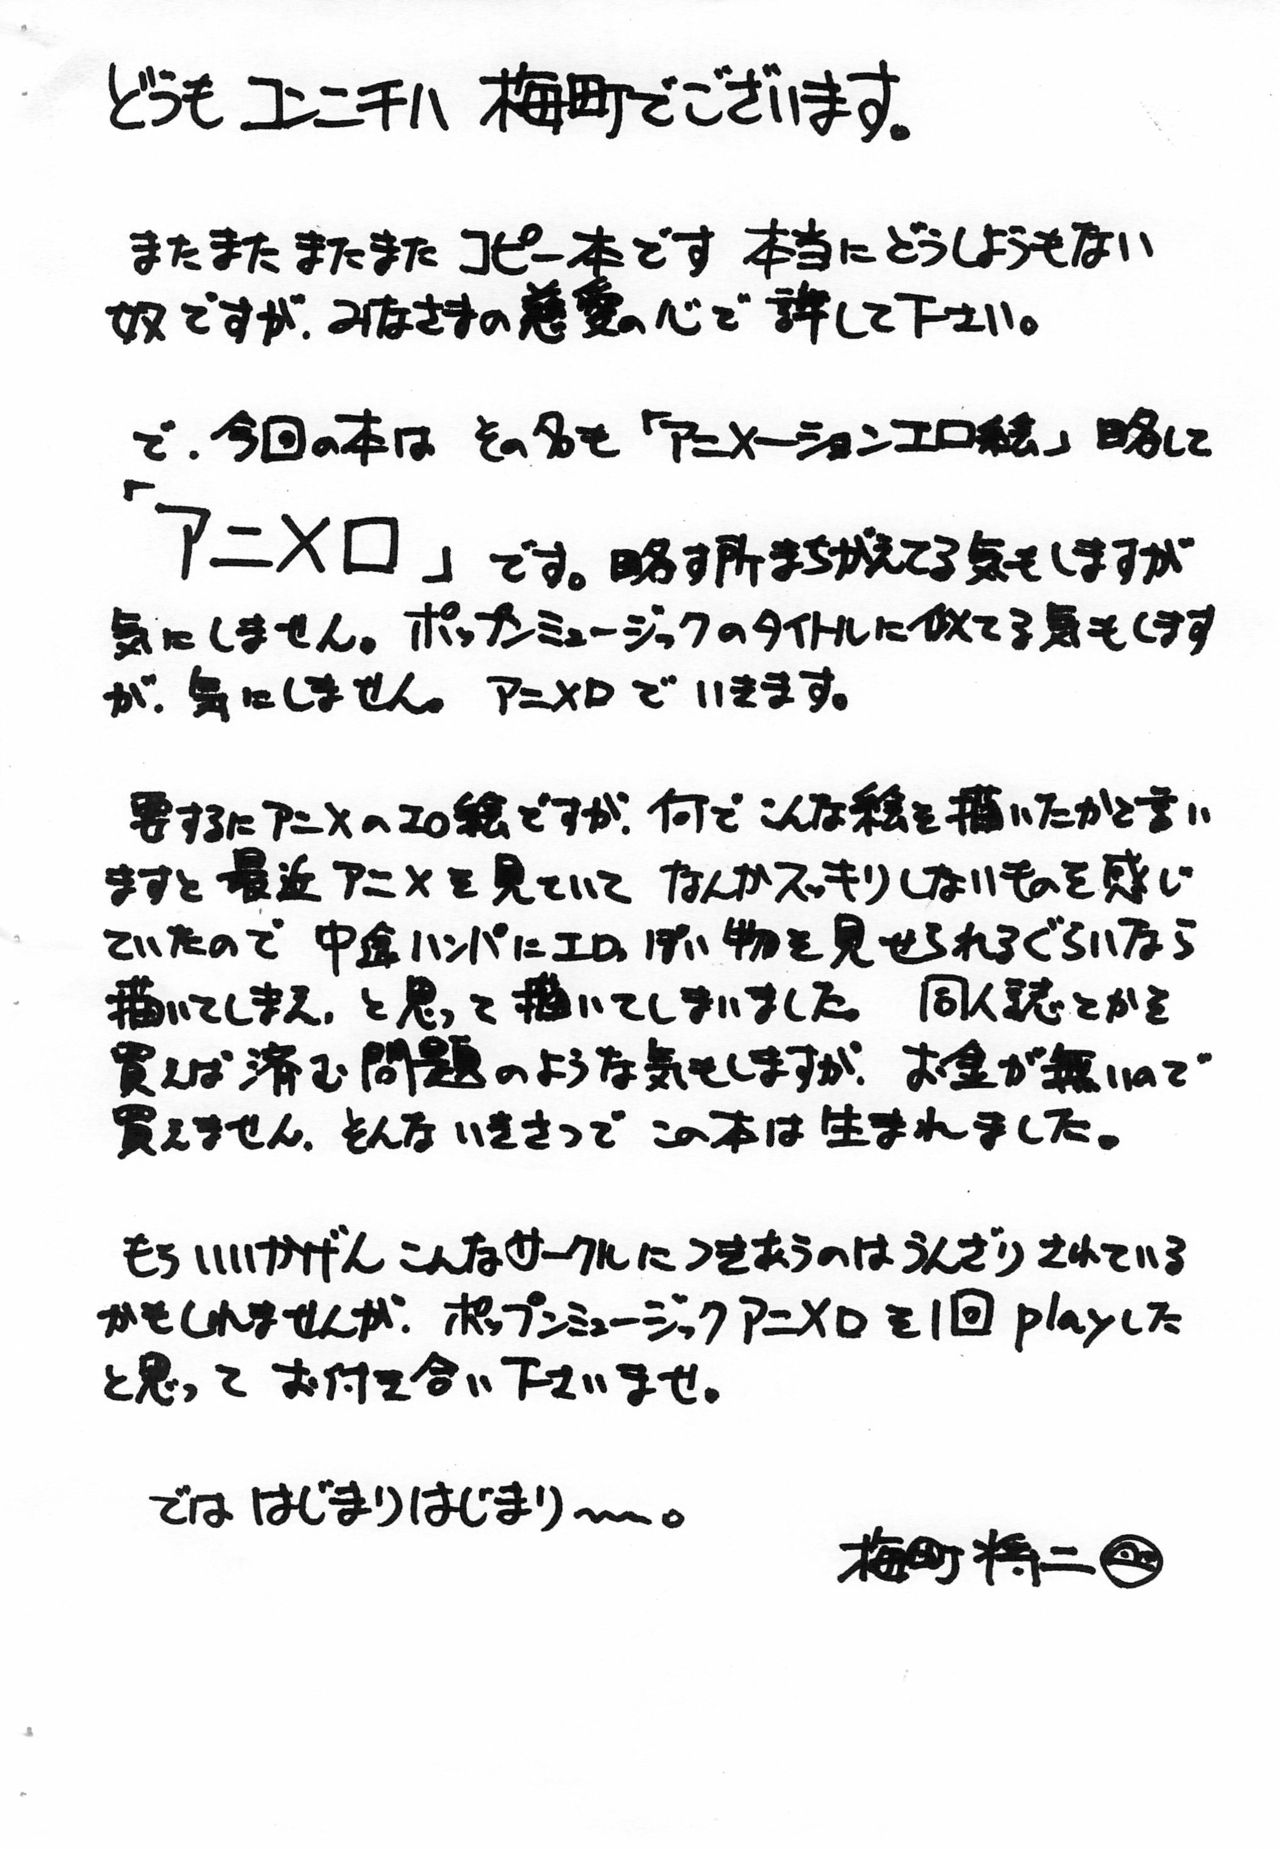 どうも コンニチハ 梅町でございます。
またまた またまた コピー本です 本当に どうしようもない
奴ですが、みなさまの慈愛の心で 許して下さい。
で、今回の本は その名も「アニメーションエロ絵」略して
「アニメロ」です。略す所まちがえてる気もしますが
気にしません。ポップンミュージックのタイトルに似てる気もします
が、気にしません。 アニメロで いきます。
要するにアニメのエロ絵ですが、何で こんな絵を描いたかと言い
ますと 最近 アニメを見ていて なんかスッキリしないものを感じ
ていたので 中途ハンパにエロっぽい物を見せられるぐらいなら
描いてしまえ、と思って描いてしまいました。 同人誌とかを
買えば済む問題のような気もしますが、お金が無いので
買えません、そんないきさつで この本は生まれました。
もういいかげん こんなサークルにつきあうのは うんざりされている
かもしれませんが、ポップンミュージックアニメロを1回playした
と思って お付き合い下さいませ。
では はじまりはじまり〜。
梅町 将二